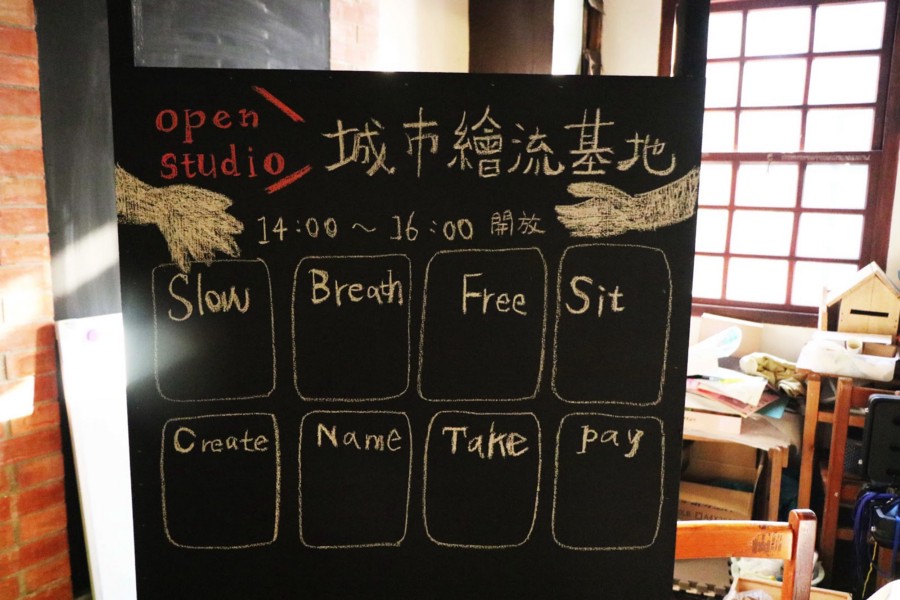 open
studio
城市繪流基地
14:00 ~ 16:00 開放
Slow Breath Free Sit
Create Name Take pay